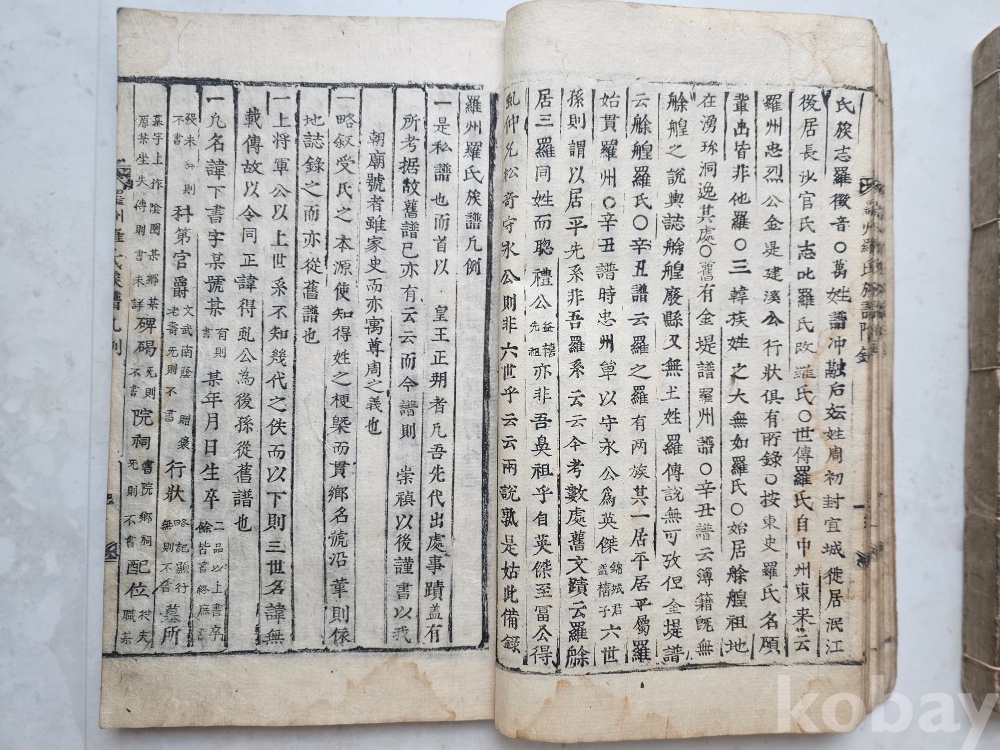 氏族志羅徵者○萬姓譜冲融后妘姓周初封宜城徙居泯江
後居長沙官氏志叱羅氏改羅氏○世傳羅氏自中州東来云
羅州忠烈公金堤建溪公行狀俱有所錄○按東史羅氏名顯
輩出皆非他羅○三韓族姓之大無如羅氏○始居艅艎祖地
在湧珎洞逸其處○舊有金堤譜羅州譜○辛丑譜云簿籍旣無
艅艎之說輿誌艅艎廢縣又無土姓羅傳說無可攷但金堤譜
云艅艎羅氏○辛丑譜云羅之羅有两族其一居平居平屬羅
始貫羅州○辛丑譜時忠州單以守永公爲英傑錦城君益禧子六世
孫則謂以居平先系非吾羅系云云今考數處舊文蹟云羅艅
居三羅同姓而聦禮公益禧先祖亦非吾鼻祖乎自英傑至冨公得
虬仲允松竒守永公則非六世乎云云兩說孰是姑此備錄
羅州羅氏族譜凡例
一是私譜也而首以 皇王正朔者凡吾先代出處事蹟盖有
所考据故舊譜已亦有云云而今譜則 崇禎以後謹書以我
朝廟號者雖家史而亦寓尊周之義也
一略叙受氏之本源使知得姓之梗槩而貫鄉名號沿革則依
地誌錄之而亦從舊譜也
一上将軍公以上世系不知幾代之佚而以下則三世名諱無
載傳故以令同正諱得虬公為後孫從舊譜也
一凡名諱下書字某號某有則書某年月日生卒二品以上書卒餘皆書終庶
張未不書則科第官爵文武南蔭老壽无則不書贈褒行狀略記顯行無則不書墓所
某字上作陰圈某鄉某原某坐失傳則書未詳碑碣无則不書院祠書院鄉祠无則不書配位
羅州羅氏族譜凡例